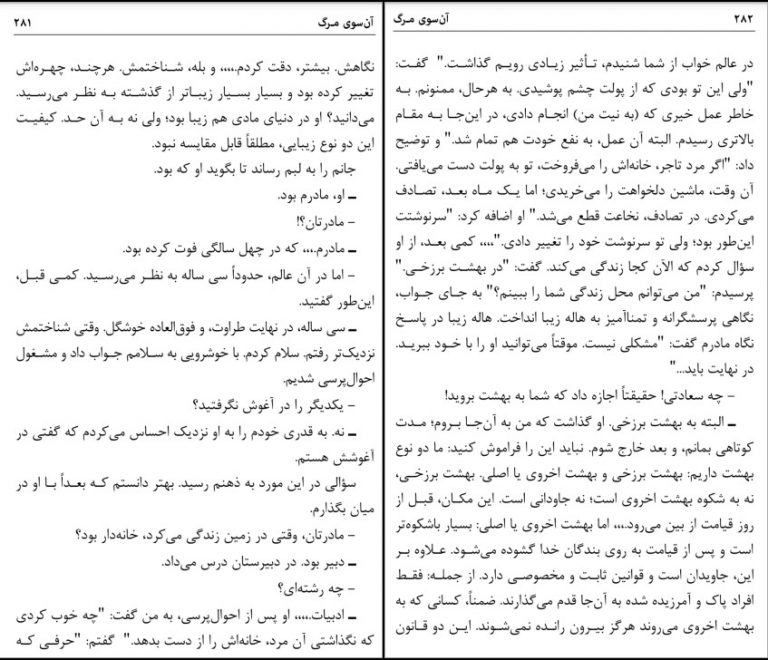 ۲۸۱ آن‌سوی مرگ
نگاهش. بیشتر، دقت کردم.،،،، و بله، شناختمش. هرچند، چهره‌اش
تغییر کرده بود و بسیار بسیار زیباتر از گذشته به نظر می‌رسید.
می‌دانید؟ او در دنیای مادی هم زیبا بود؛ ولی نه به آن حد. کیفیت
این دو نوع زیبایی، مطلقاً قابل مقایسه نبود.
جانم را به لبم رساند تا بگوید او که بود.
ـ او، مادرم بود.
- مادرتان؟!
ـ مادرم.،،، که در چهل سالگی فوت کرده بود.
- اما در آن عالم، حدوداً سی ساله به نظر می‌رسید. کمی قبل،
این‌طور گفتید.
ـ سی ساله، در نهایت طراوت، و فوق‌العاده خوشگل. وقتی شناختمش
نزدیک‌تر رفتم. سلام کردم. با خوشرویی به سلامم جواب داد و مشغول
احوال‌پرسی شدیم.
- یکدیگر را در آغوش نگرفتید؟
ـ نه. به قدری خودم را به او نزدیک احساس می‌کردم که گفتی در
آغوشش هستم.
سؤالی در این مورد به ذهنم رسید. بهتر دانستم که بعداً با او در
میان بگذارم.
- مادرتان، وقتی در زمین زندگی می‌کرد، خانه‌دار بود؟
ـ دبیر بود. در دبیرستان درس می‌داد.
- چه رشته‌ای؟
ـ ادبیات.،،،، او پس از احوال‌پرسی، به من گفت: "چه خوب کردی
که نگذاشتی آن مرد، خانه‌اش را از دست بدهد." گفتم: "حرفی که
آن‌سوی مرگ ۲۸۲
در عالم خواب از شما شنیدم، تأثیر زیادی رویم گذاشت." گفت:
"ولی این تو بودی که از پولت چشم پوشیدی. به هرحال، ممنونم. به
خاطر عمل خیری که (به نیت من) انجام دادی، در این‌جا به مقام
بالاتری رسیدم. البته آن عمل، به نفع خودت هم تمام شد." و توضیح
داد: "اگر مرد تاجر، خانه‌اش را می‌فروخت، تو به پولت دست می‌یافتی.
آن وقت، ماشین دلخواهت را می‌خریدی؛ اما یک ماه بعد، تصادف
می‌کردی. در تصادف، نخاعت قطع می‌شد." او اضافه کرد: "سرنوشتت
این‌طور بود؛ ولی تو سرنوشت خود را تغییر دادی."،،،، کمی بعد، از او
سؤال کردم که الآن کجا زندگی می‌کند. گفت: "در بهشت برزخی."
پرسیدم: "من می‌توانم محل زندگی شما را ببینم؟" به جای جواب،
نگاهی پرسشگرانه و تمناآمیز به هاله زیبا انداخت. هاله زیبا در پاسخ
نگاه مادرم گفت: "مشکلی نیست. موقتاً می‌توانید او را با خود ببرید.
در نهایت باید..."
- چه سعادتی! حقیقتاً اجازه داد که شما به بهشت بروید!
ـ البته به بهشت برزخی. او گذاشت که من به آن‌جا بروم؛ مدت
کوتاهی بمانم، و بعد خارج شوم. نباید این را فراموش کنید: ما دو نوع
بهشت داریم: بهشت برزخی و بهشت اخروی یا اصلی. بهشت برزخی،
نه به شکوه بهشت اخروی است؛ نه جاودانی است. این مکان، قبل از
روز قیامت از بین می‌رود.،،، اما بهشت اخروی یا اصلی: بسیار باشکوه‌تر
است و پس از قیامت به روی بندگان خدا گشوده می‌شود. علاوه بر
این، جاویدان است و قوانین ثابت و مخصوصی دارد. از جمله: فقط
افراد پاک و آمرزیده شده به آن‌جا قدم می‌گذارند. ضمناً، کسانی که به
بهشت اخروی می‌روند هرگز بیرون رانده نمی‌شوند. این دو قانون